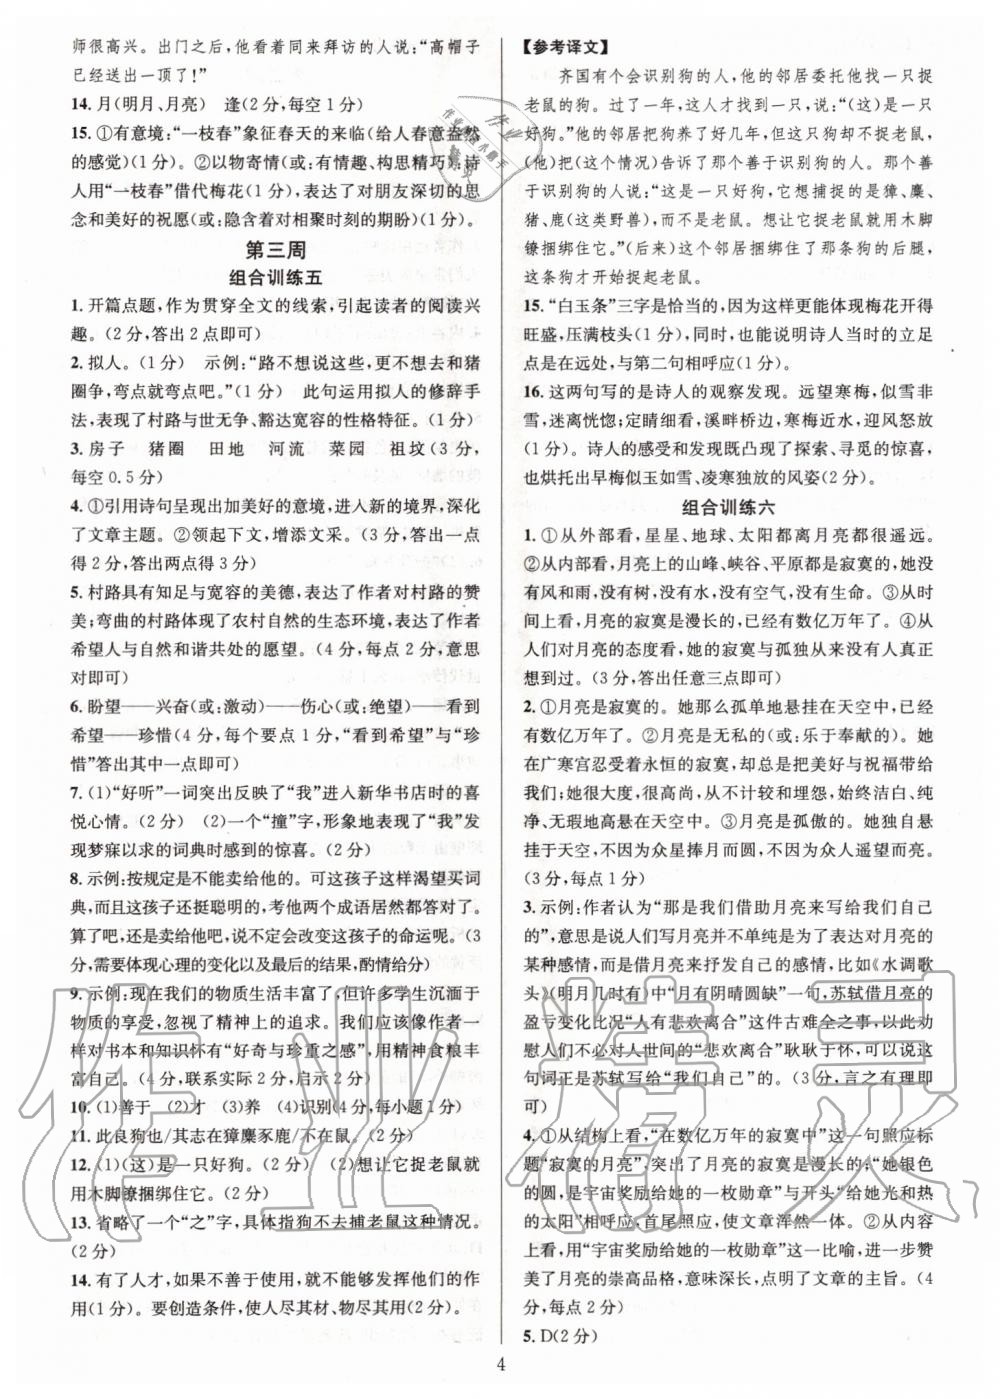 师很高兴。出门之后,他看着同来拜访的人说:“高帽子
已经送出一顶了!”
14. 月(明月、月亮)　逢(2分,每空1分)
15. ①有意境:“一枝春”象征春天的来临(给人春意盎然
的感觉)(1分)。②以物寄情(或:有情趣、构思精巧):诗
人用“一枝春”借代梅花(1分),表达了对朋友深切的思
念和美好的祝愿(或:隐含着对相聚时刻的期盼)(1分)。
第三周
组合训练五
1. 开篇点题,作为贯穿全文的线索,引起读者的阅读兴
趣。(2分,答出2点即可)
2. 拟人。(1分)　示例:“路不想说这些,更不想去和猪
圈争,弯点就弯点吧。”(1分)　此句运用拟人的修辞手
法,表现了村路与世无争、豁达宽容的性格特征。(1分)
3. 房子　猪圈　田地　河流　菜园　祖坟(3分,
每空0.5分)
4. ①引用诗句呈现出加美好的意境,进入新的境界,深化
了文章主题。②领起下文,增添文采。(3分,答出一点
得2分,答出两点得3分)
5. 村路具有知足与宽容的美德,表达了作者对村路的赞
美;弯曲的村路体现了农村自然的生态环境,表达了作者
希望人与自然和谐共处的愿望。(4分,每点2分,意思
对即可)
6. 盼望——兴奋(或:激动)——伤心(或:绝望)——看到
希望——珍惜(4分,每个要点1分,“看到希望”与“珍
惜”答出其中一点即可)
7. (1)“好听”一词突出反映了“我”进入新华书店时的喜
悦心情。(2分)　(2)一个“撞”字,形象地表现了“我”发
现梦寐以求的词典时感到的惊喜。(2分)
8. 示例:按规定是不能卖给他的。可这孩子这样渴望买词
典,而且这孩子还挺聪明的,考他两个成语居然都答对了。
算了吧,还是卖给他吧,说不定会改变这孩子的命运呢。(3
分,需要体现心理的变化以及最后的结果,酌情给分)
9. 示例:现在我们的物质生活丰富了,但许多学生沉湎于
物质的享受,忽视了精神上的追求。我们应该像作者一
样对书本和知识怀有“好奇与珍重之感”,用精神食粮丰
富自己。(4分,联系实际2分,启示2分)
10. (1)善于　(2)才　(3)养　(4)识别(4分,每小题1分)
11. 此良狗也/其志在獐麋豕鹿/不在鼠。(2分)
12. (1)(这)是一只好狗。(2分)　(2)想让它捉老鼠就
用木脚镣捆绑住它。(2分)
13. 省略了一个“之”字,具体指狗不去捕老鼠这种情况。
(2分)
14. 有了人才,如果不善于使用,就不能够发挥他们的作
用(1分)。要创造条件,使人尽其材、物尽其用(2分)。
【参考译文】
齐国有个会识别狗的人,他的邻居委托他找一只捉
老鼠的狗。过了一年,这人才找到一只,说:“(这)是一只
好狗。”他的邻居把狗养了好几年,但这只狗却不捉老鼠,
(他)把(这个情况)告诉了那个善于识别狗的人。那个善
于识别狗的人说:“这是一只好狗,它想捕捉的是獐、麋、
猪、鹿(这类野兽),而不是老鼠。想让它捉老鼠就用木脚
镣捆绑住它。”(后来)这个邻居捆绑住了那条狗的后腿,
这条狗才开始捉起老鼠。
15. “白玉条”三字是恰当的,因为这样更能体现梅花开得
旺盛,压满枝头(1分),同时,也能说明诗人当时的立足
点是在远处,与第二句相呼应(1分)。
16. 这两句写的是诗人的观察发现。远望寒梅,似雪非
雪,迷离恍惚;定睛细看,溪畔桥边,寒梅近水,迎风怒放
(1分)。诗人的感受和发现既凸显了探索、寻觅的惊喜,
也烘托出早梅似玉如雪、凌寒独放的风姿(2分)。
组合训练六
1. ①从外部看,星星、地球、太阳都离月亮很遥远。
②从内部看,月亮上的山峰、峡谷、平原都是寂寞的,她没
有风和雨,没有树,没有水,没有空气,没有生命。③从时
间上看,月亮的寂寞是漫长的,已经有数亿万年了。④从
人们对月亮的态度看,她的寂寞与孤独从来没有人真正
想到过。(3分,答出任意三点即可)
2. ①月亮是寂寞的。她那么孤单地悬挂在天空中,已经
有数亿万年了。②月亮是无私的(或:乐于奉献的)。她
在广寒宫忍受着永恒的寂寞,只是为了把美好与祝福带给
我们;她很大度,很高尚,从不计较和埋怨,始终以洁白、纯
净、无瑕地高悬于天空。③月亮是孤傲的。她独自悬
挂于天空,不因为众星捧月而圆,不因为众人遥望而亮。
(3分,每点1分)
3. 示例:作者认为“那是我们借助月亮来写给我们自己
的”,意思是说人们写月亮并不单纯是为了表达对月亮的
某种感情,而是借月亮来抒发自己的感情,比如《水调歌
头》(明月几时有)中“月有阴晴圆缺”一句,苏轼借月亮的
盈亏变化比况“人有悲欢离合”这件古难全之事,以此劝
慰人们不必对人世间的“悲欢离合”耿耿于怀,可以说这
句词正是苏轼写给“我们自己”的。(3分,言之有理即
可)
4. ①从结构上看,“在数亿万年的寂寞中”这一句照应标
题“寂寞的月亮”,突出了月亮的寂寞是漫长的;“她银色
的圆,是宇宙奖励给她的一枚勋章”与“给她光和热
的太阳”相呼应,首尾照应,使文章浑然一体。②从内容
上看,用“宇宙奖励给她的一枚勋章”这一比喻,进一步赞
美了月亮的崇高品格,意味深长,点明了文章的主旨。(4
分,每点2分)
5. D(2分)
4
作业精灵